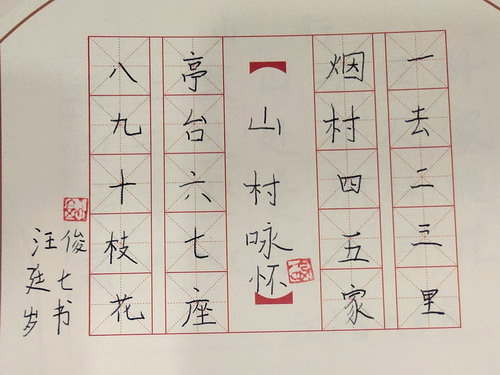 一去二三里
烟村四五家
山村咏怀
亭台六七座
八九十枝花
汪俊
廷七
岁书